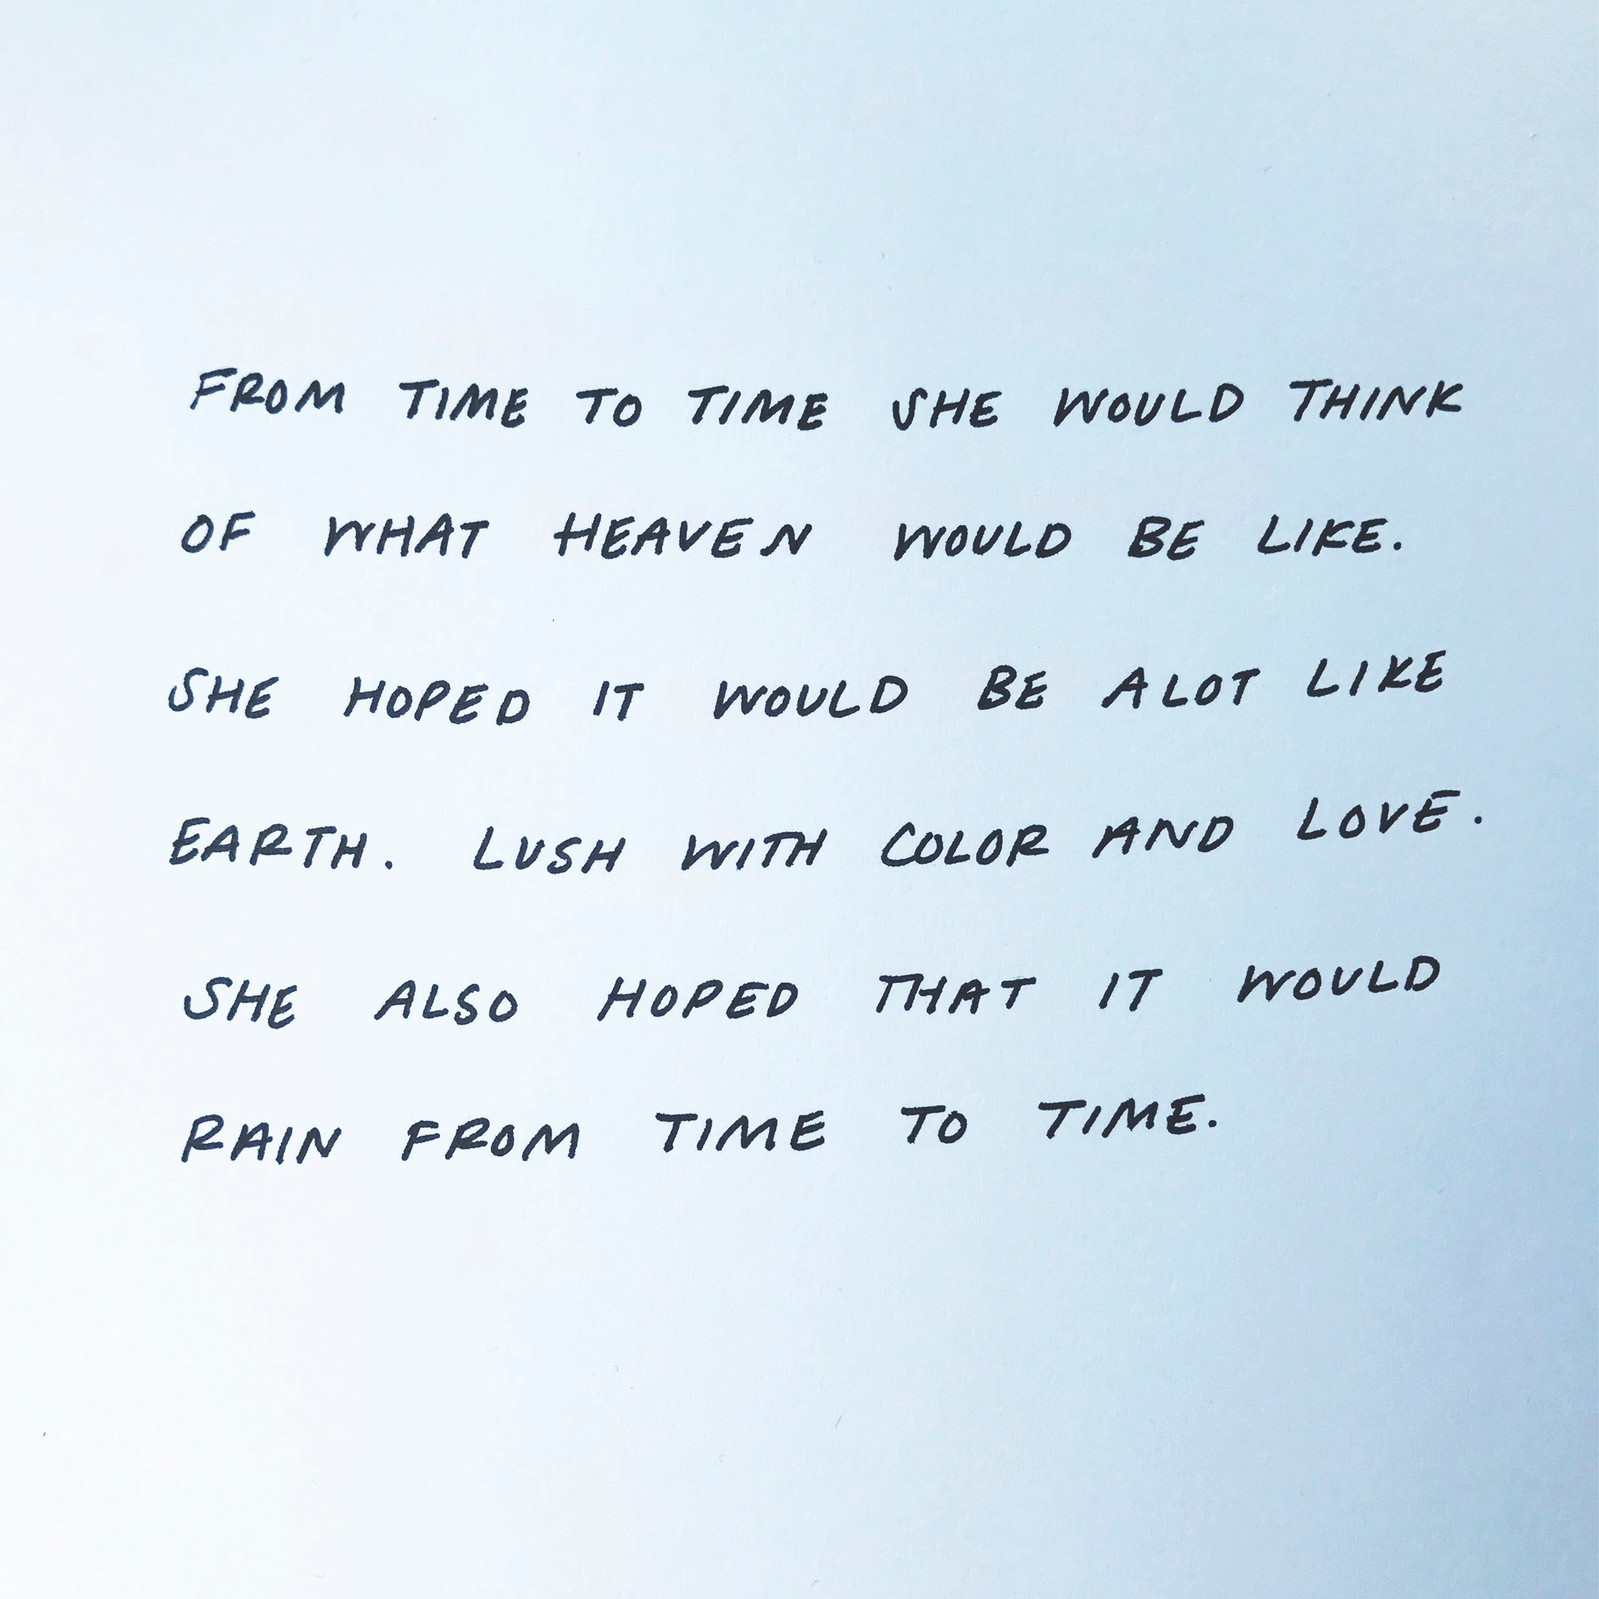 FROM TIME TO TIME SHE WOULD THINK
OF WHAT HEAVEN WOULD BE LIKE.
SHE HOPED IT WOULD BE ALOT LIKE
EARTH. LUSH WITH COLOR AND LOVE.
SHE ALSO HOPED THAT IT WOULD
RAIN FROM TIME TO TIME.